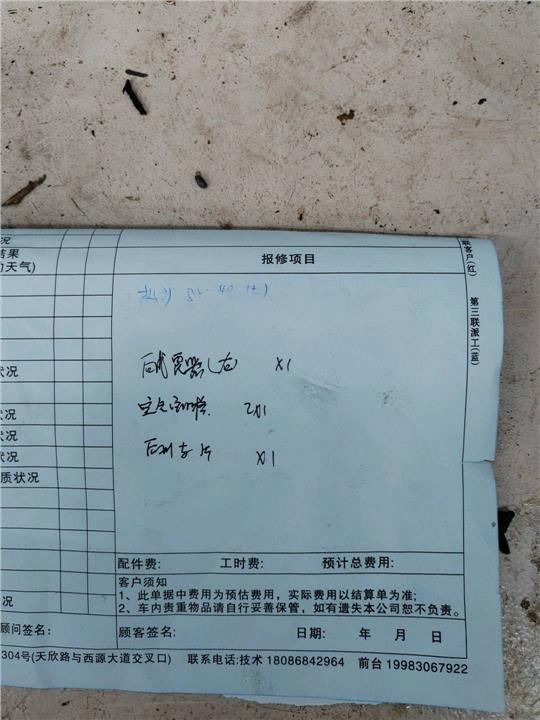 况
结果
的天气)
状况
状况
状况
质状况
况
报修项目
5w-40
后减震器(右) X1
X1
后刹车片 X1
配件费: 工时费: 预计总费用:
客户须知
1、此单据中费用为预估费用,实际费用以结算单为准;
2、车内贵重物品请自行妥善保管,如有遗失本公司恕不负责。
顾问签名: 顾客签名: 日期: 年 月 日
304号(天欣路与西源大道交叉口) 联系电话:技术 18086842964 前台 19983067922
联客户(红)
第三联派工(蓝)